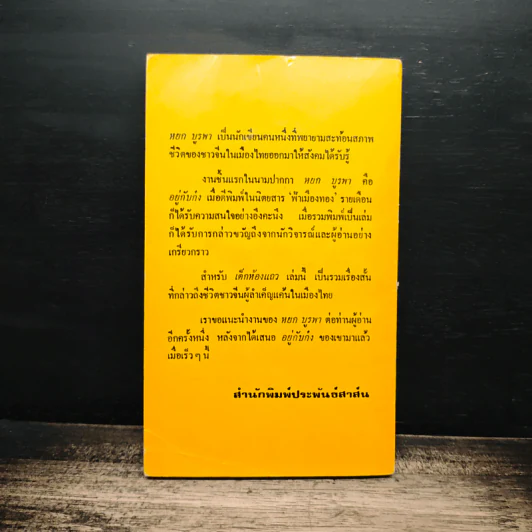 หยก บูรพา เป็นนักเขียนคนหนึ่งที่พยายามสะท้อนสภาพ
ชีวิตของชาวจีนในเมืองไทยออกมาให้สังคมได้รับรู้
งานชิ้นแรกในนามปากกา หยก บูรพา คือ
อยู่กับก๋ง เมื่อตีพิมพ์ในนิตยสาร 'ฟ้าเมืองทอง' รายเดือน
ก็ได้รับความสนใจอย่างอึงคะนึง เมื่อรวมพิมพ์เป็นเล่ม
ก็ได้รับการกล่าวขวัญถึงจากนักวิจารณ์และผู้อ่านอย่าง
เกรียวกราว
สำหรับ เด็กห้องแถว เล่มนี้ เป็นรวมเรื่องสั้น
ที่กล่าวถึงชีวิตชาวจีนผู้ลำเค็ญแค้นในเมืองไทย
เราขอแนะนำงานของ หยก บูรพา ต่อท่านผู้อ่าน
อีกครั้งหนึ่ง หลังจากได้เสนอ อยู่กับก๋ง ของเขามาแล้ว
เมื่อเร็ว ๆ นี้
สำนักพิมพ์ประพันธ์สาส์น